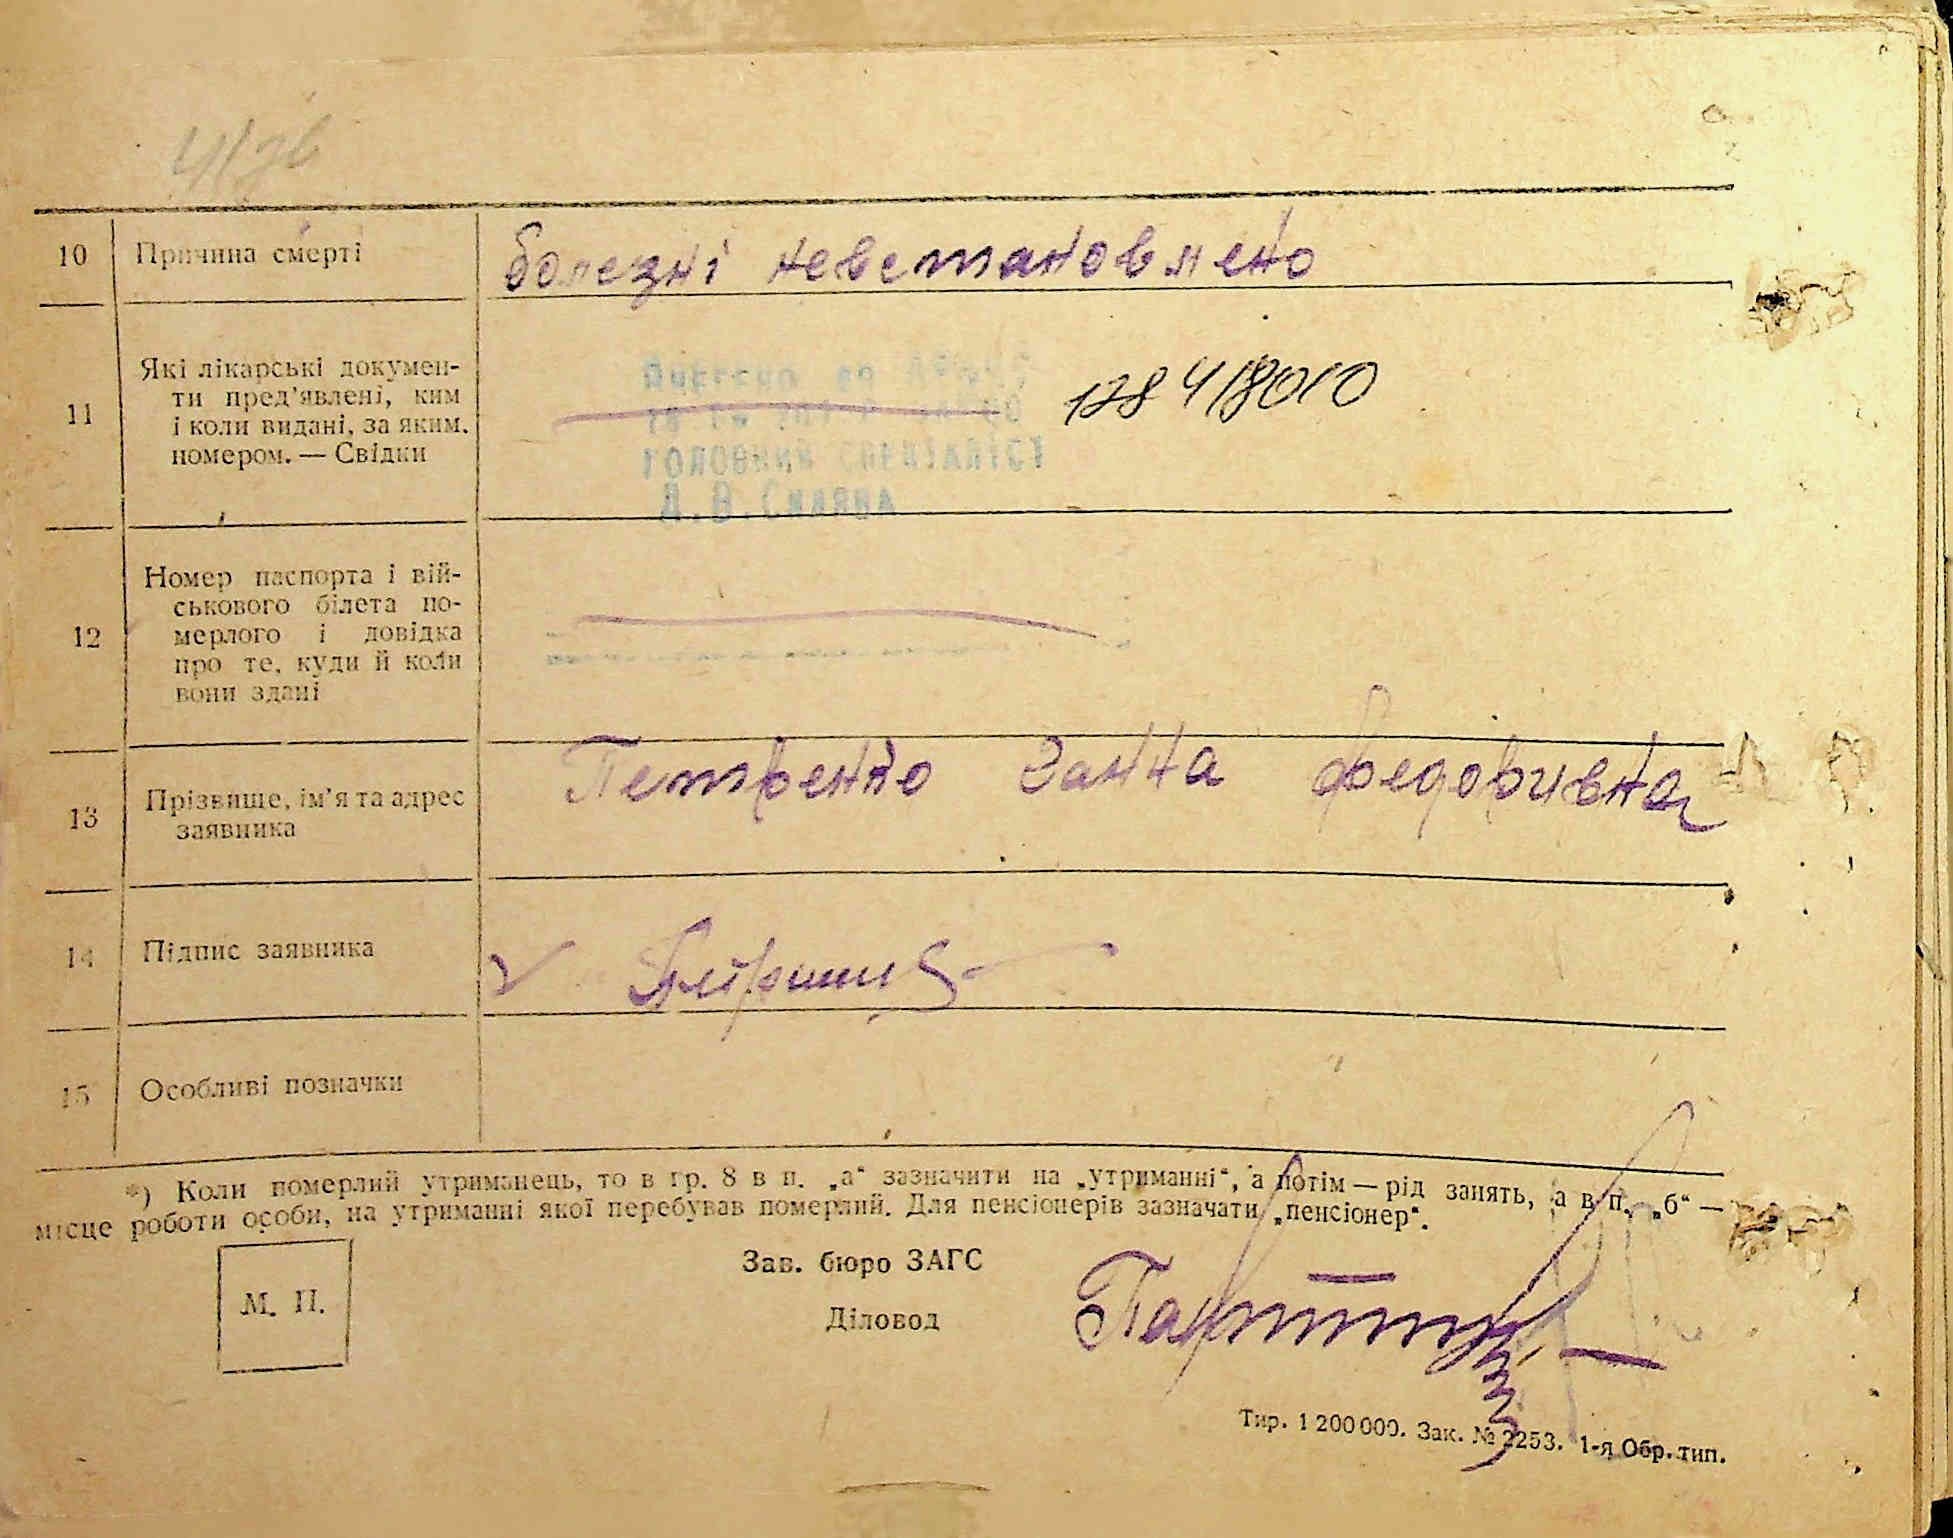 10 Причина смерті
болезні невстановлено
11 Які лікарські докумен-
ти пред'явлені, ким
і коли видані, за яким.
номером. — Свідки
128 4/8010
ГОЛОВНИЙ СПЕЦІАЛІСТ
12 Номер паспорта і вій-
ськового білета по-
мерлого і довідка
про те, куди й коли
вони здані
13 Прізвище, ім'я та адрес
заявника
Петренко Ганна Федоривна
14 Підпис заявника
15 Особливі позначки
*) Коли померлий утриманець, то в гр. 8 в п. „а“ зазначити на „утриманні“, а потім — рід занять, а в п. „б“ —
місце роботи особи, на утриманні якої перебував померлий. Для пенсіонерів зазначати „пенсіонер“.
М. П.
Зав. бюро ЗАГС
Діловод
Тир. 1 200 000. Зак. № 2253. 1-я Обр. тип.